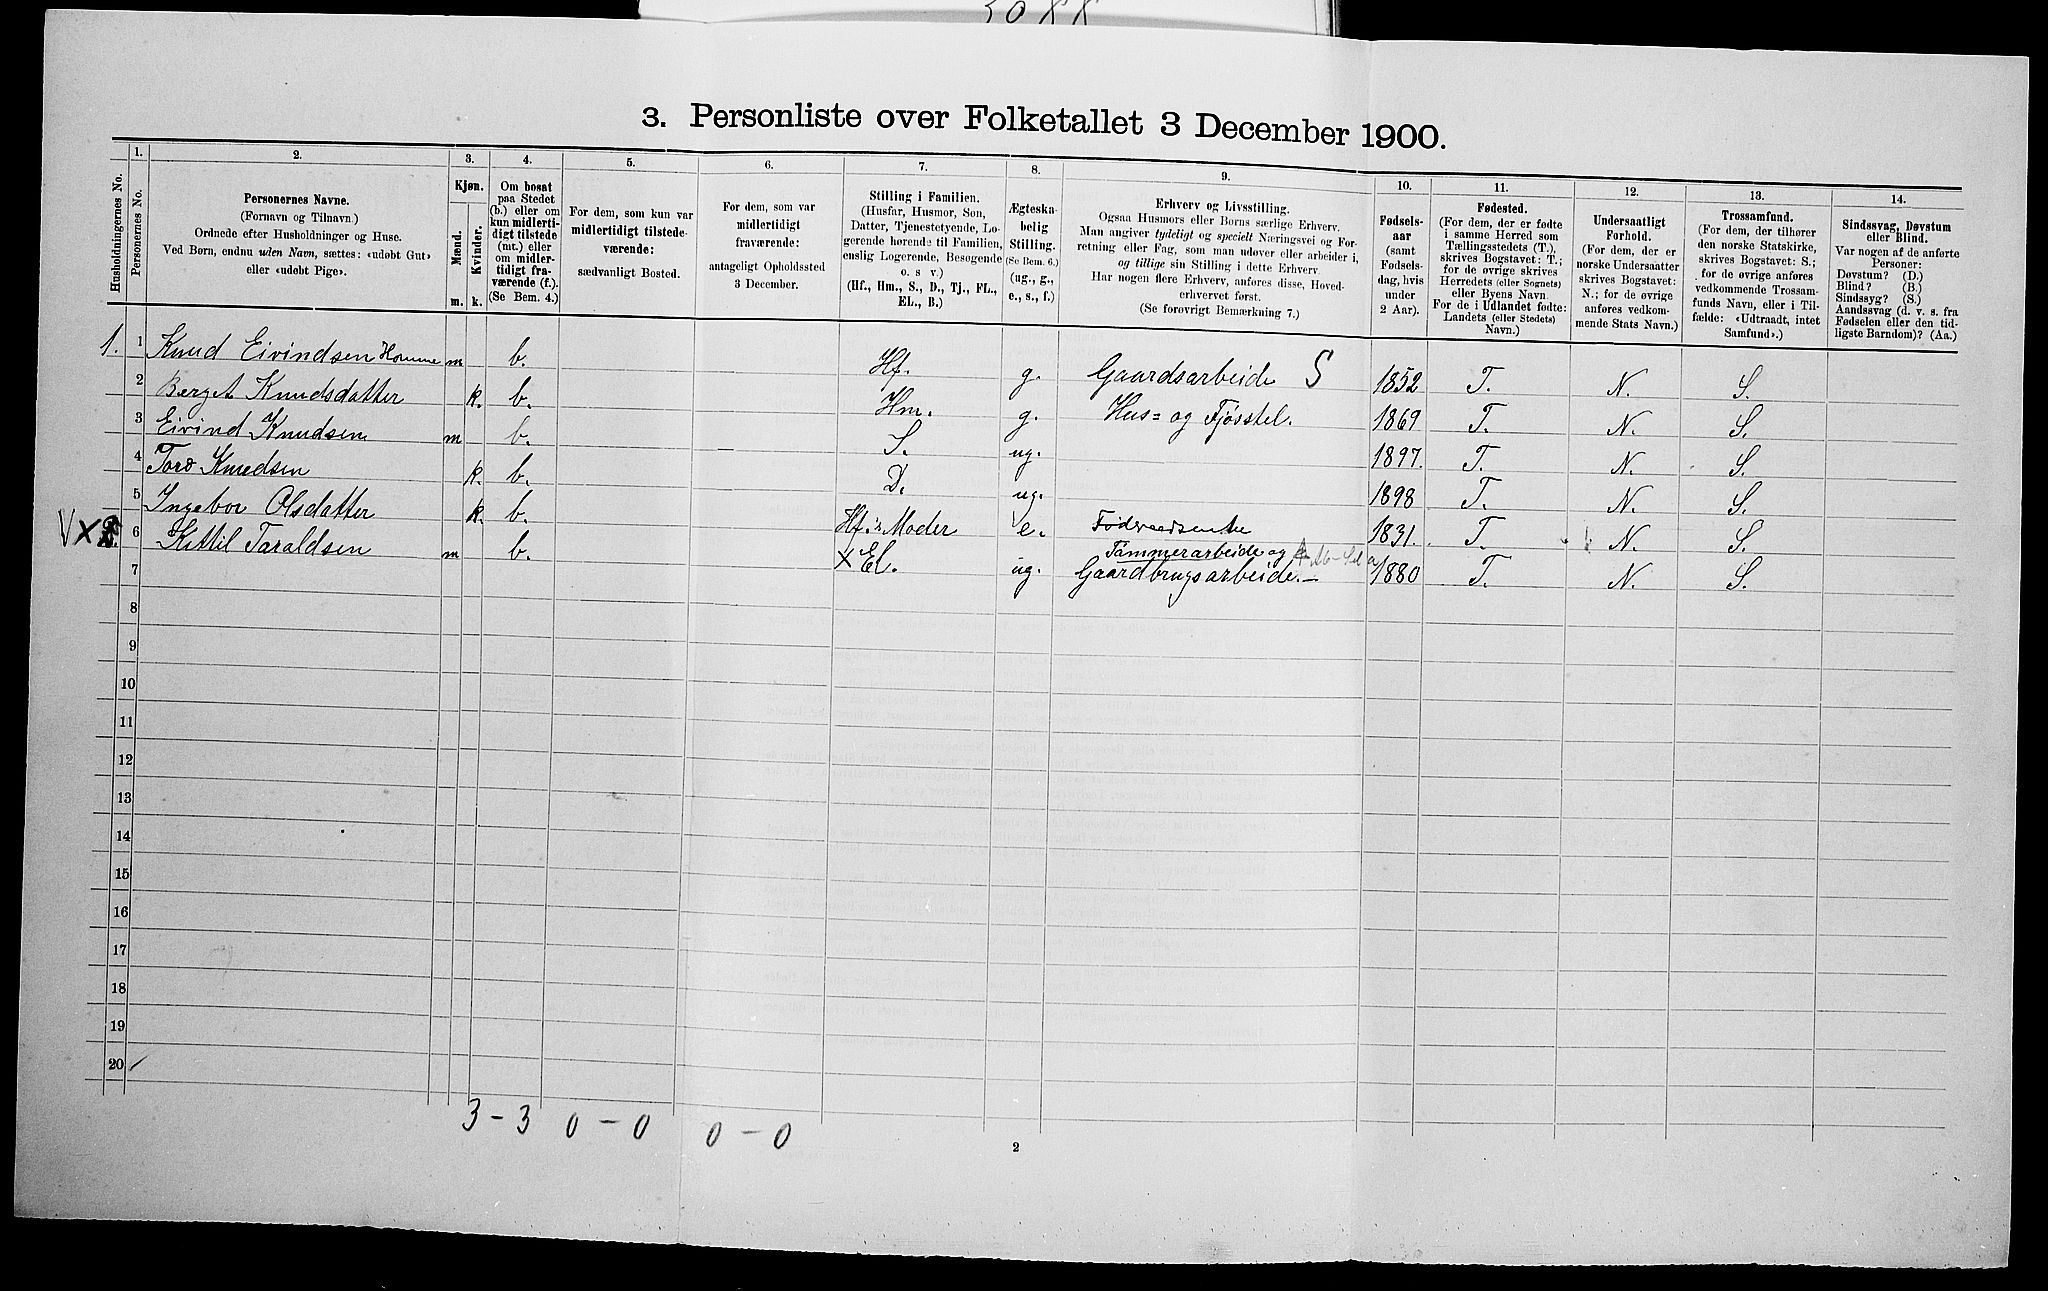 3. Personliste over Folketallet 3 December 1900.
Husholdningernes No.
1.
Personernes No.
2.
Personernes Navne.
(Fornavn og Tilnavn.)
Ordnede efter Husholdninger og Huse.
Ved Børn, endnu uden Navn, sættes: «udøbt Gut»
eller «udøbt Pige».
3.
Kjøn.
Mænd.
Kvinder.
m. k.
4.
Om bosat
paa Stedet
(b.) eller om
kun midlerti-
digt tilstede
(mt.) eller
om midler-
tidigt fra-
værende (f.).
(Se Bem. 4.)
5.
For dem, som kun var
midlertidigt tilstede-
værende:
sædvanligt Bosted.
6.
For dem, som var
midlertidigt
fraværende:
antageligt Opholdssted
3 December.
7.
Stilling i Familien.
(Husfar, Husmor, Søn,
Datter, Tjenestetyende, Lo-
gerende hørende til Familien,
enslig Logerende, Besøgende
o. s v.)
(Hf., Hm., S., D., Tj., FL.,
EL., B.)
8.
Ægteska-
belig
Stilling.
(Se Bem. 6.)
(ug., g.,
e., s., f.)
9.
Erhverv og Livsstilling.
Ogsaa Husmors eller Børns særlige Erhverv.
Man angiver tydeligt og specielt Næringsvei og For-
retning eller Fag, som man udøver eller arbeider i,
og tillige sin Stilling i dette Erhverv.
Har nogen flere Erhverv, anføres disse, Hoved-
erhvervet først.
(Se forøvrigt Bemærkning 7.)
10.
Fødsels-
aar
(samt
Fødsels-
dag, hvis
under
2 Aar).
11.
Fødested.
(For dem, der er fødte
i samme Herred som
Tællingsstedets (T.),
skrives Bogstavet: T.;
for de øvrige skrives
Herredets (eller Sognets)
eller Byens Navn.
For de i Udlandet fødte:
Landets (eller Stedets)
Navn.)
12.
Undersaatligt
Forhold.
(For dem, der er
norske Undersaatter
skrives Bogstavet:
N.; for de øvrige
anføres vedkom-
mende Stats Navn.)
13.
Trossamfund.
(For dem, der tilhører
den norske Statskirke,
skrives Bogstavet: S.;
for de øvrige anføres
vedkommende Trossam-
funds Navn, eller i Til-
fælde: «Udtraadt, intet
Samfund».)
14.
Sindssvag, Døvstum
eller Blind.
Var nogen af de anførte
Personer:
Døvstum? (D.)
Blind? (B.)
Sindssyg? (S.)
Aandssvag (d. v. s. fra
Fødselen eller den tid-
ligste Barndom)? (Aa.)
1. 1 Knud Eivindsen Homme m b. Hf. g. Gaardsarbeide S 1852 T. N. S.
2 Berget Knudsdatter k. b. Hm. g. Hus= og Fjøsstel. 1869 T. N. S.
3 Eivind Knudsen m b. S. ug. 1897. T. N. S.
4 Toro Knudsen k. b. D. ug. 1898 T. N. S.
5 Ingebor Olsdatter k. b. Hf.'s Moder e. 1831. T. N. S.
V× 2. 6 Kittil Taraldsen m b. × EL. ug. Tømmerarbeide og
Gaardbrugsarbeide. 1880 T. N. S.
7
8
9
10
11
12
13
14
15
16
17
18
19
20
3 – 3 0 – 0 0 – 0
2